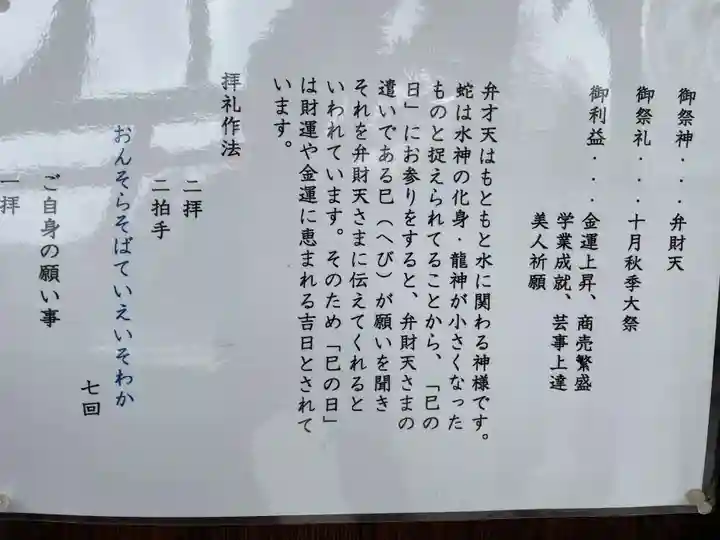 御祭神・・・弁財天
御祭礼・・・十月秋季大祭
御利益・・・金運上昇、商売繁盛
学業成就、芸事上達
美人祈願
弁才天はもともと水に関わる神様です。
蛇は水神の化身・龍神が小さくなった
ものと捉えられてることから、「巳の
日」にお参りをすると、弁財天さまの
遣いである巳（へび）が願いを聞き
それを弁財天さまに伝えてくれると
いわれています。そのため「巳の日」
は財運や金運に恵まれる吉日とされて
います。
拝礼作法
二拝
二拍手
おんそらそばていえいそわか
七回
ご自身の願い事
一拝